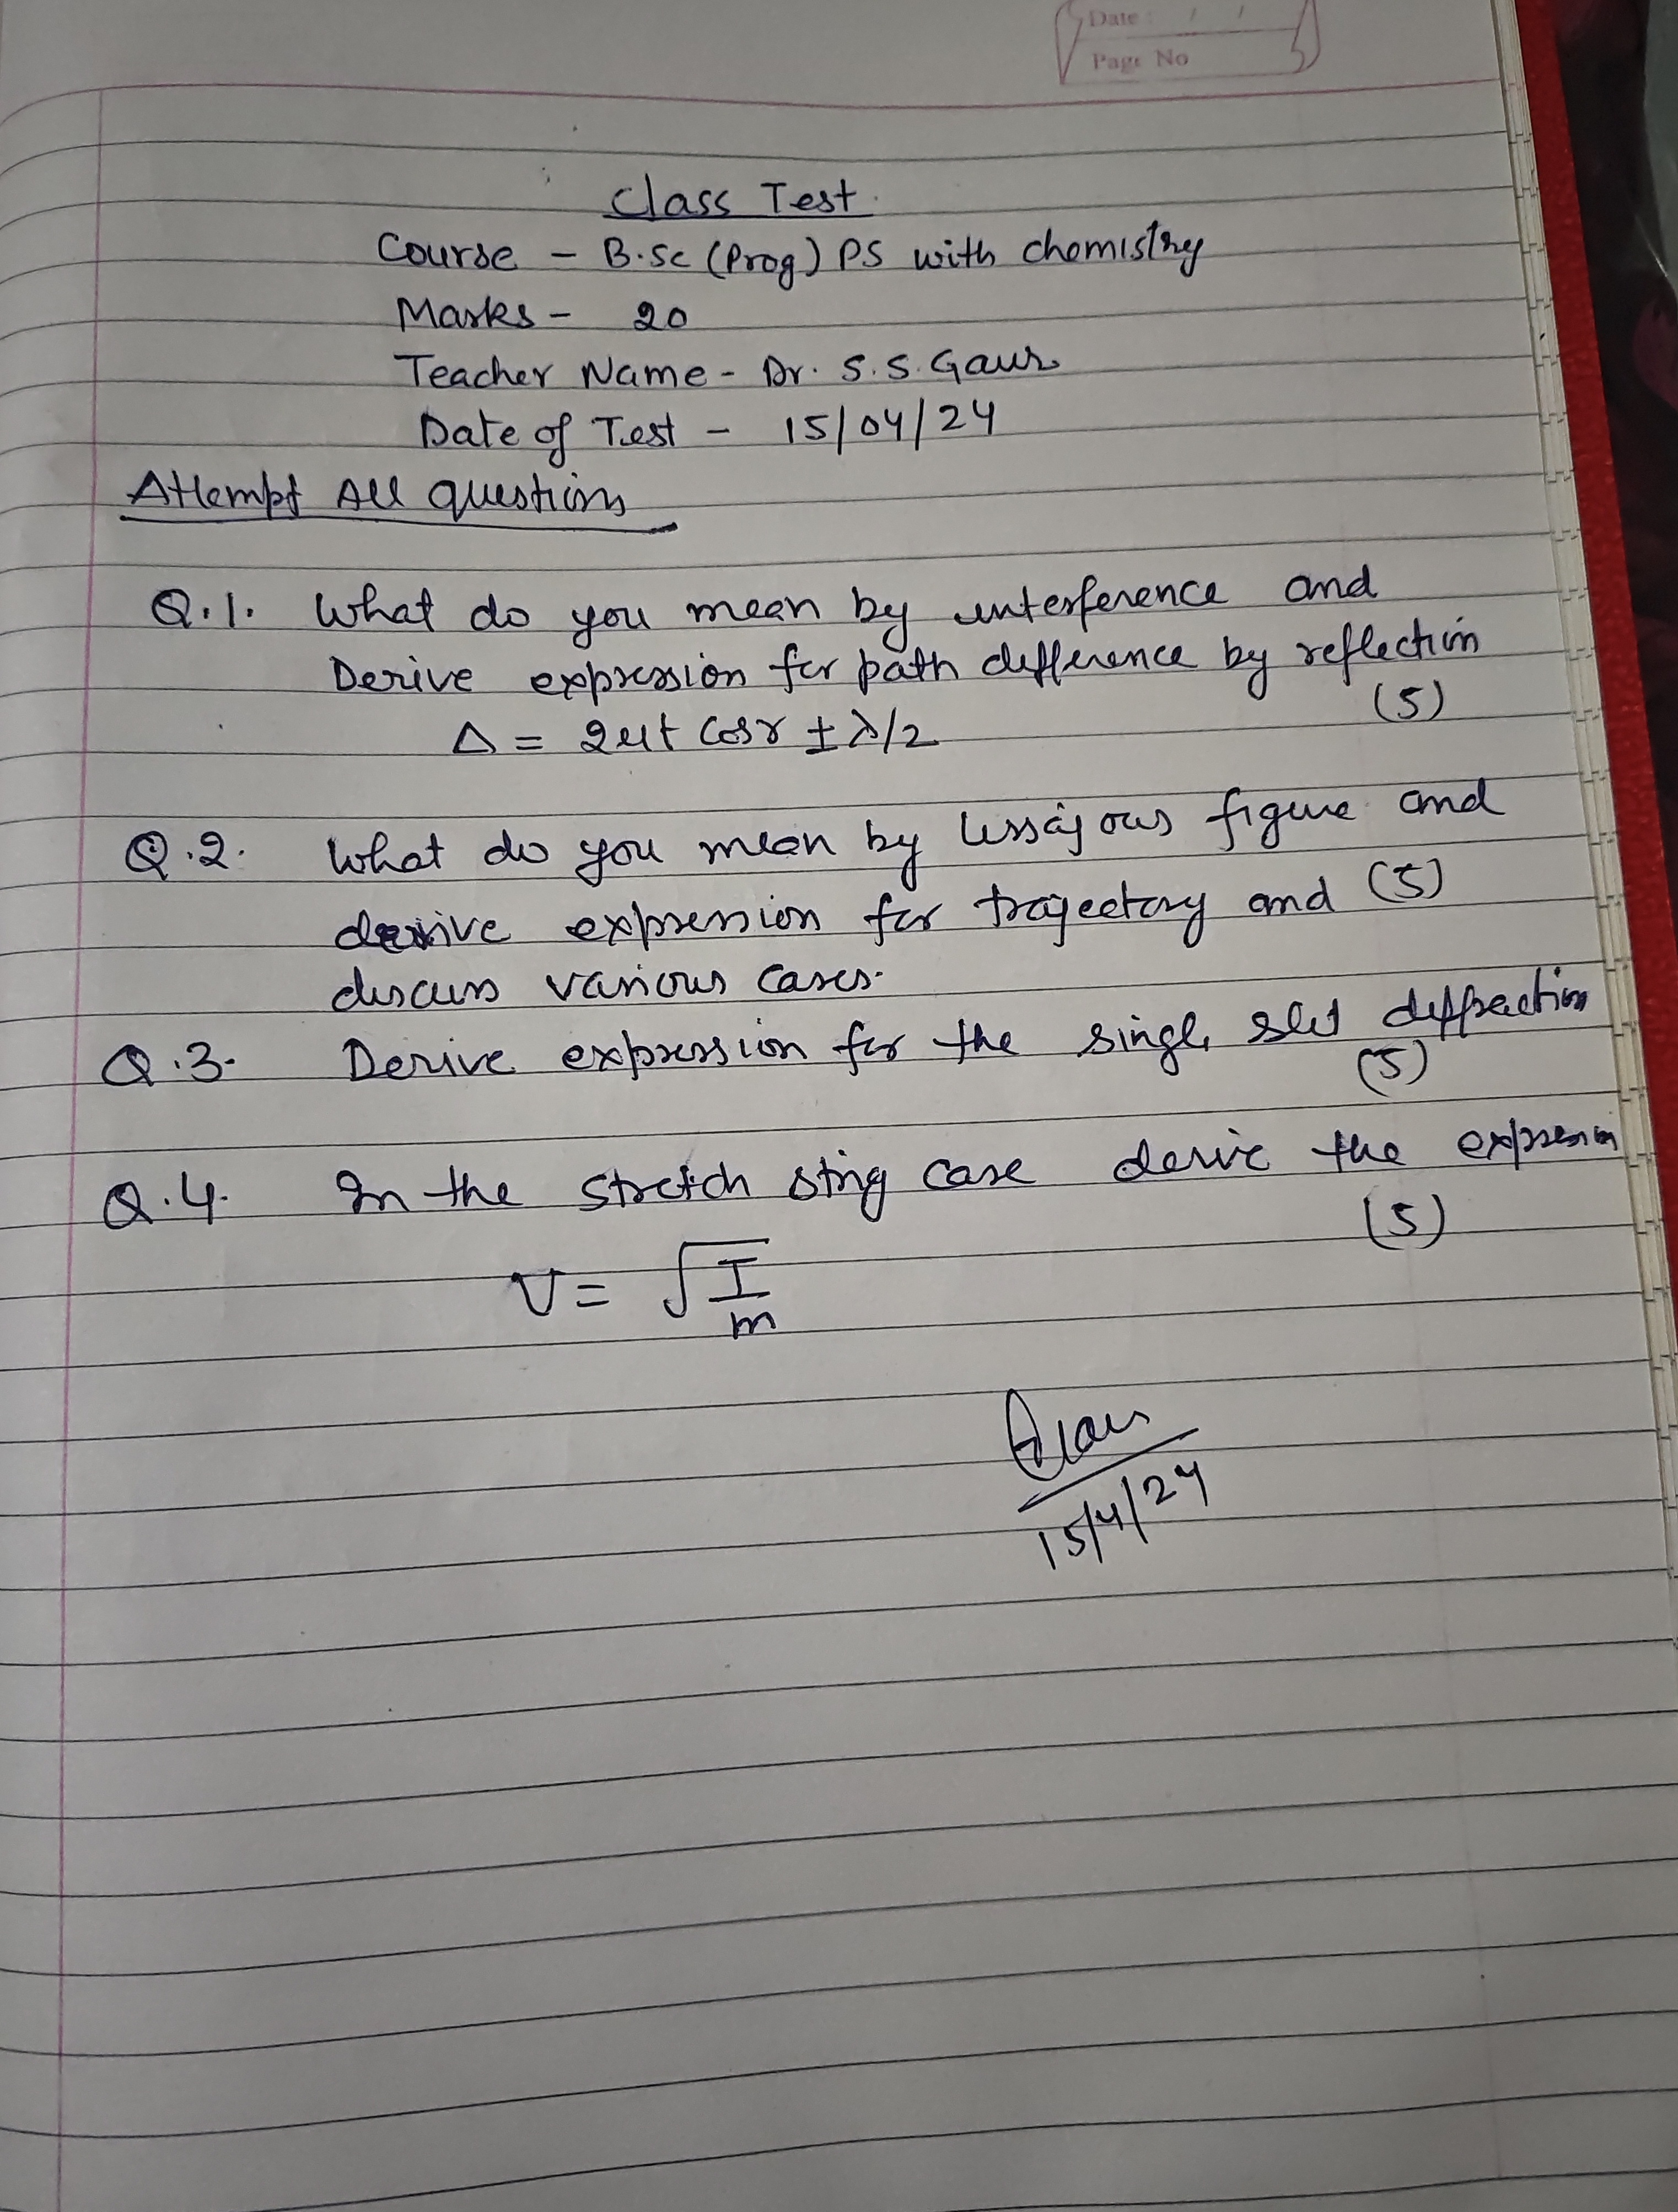 Date : / /
Page No
Class Test
Course - B.Sc (Prog) PS with chemistry
Marks - 20
Teacher Name - Dr. S.S. Gaur
Date of Test - 15/04/24
Attempt All questions
Q.1. What do you mean by interference and
Derive expression for path difference by reflection
(5)
Δ = 2μt cosr ± λ/2
Q.2. What do you mean by lissajous figure and
derive expression for trajectory and (5)
discuss various cases.
Q.3. Derive expression for the single slit diffraction
(5)
Q.4. In the stretch string case derive the expression
(5)
V = √T/m
15/4/24